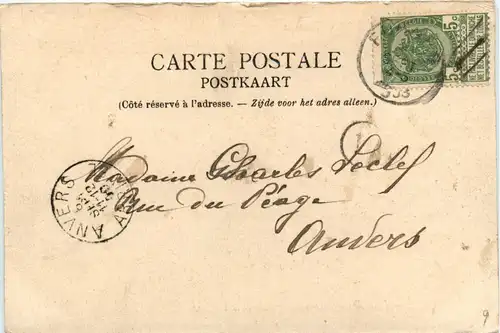 CARTE POSTALE
POSTKAART
(Côté réservé à l'adresse. — Zijde voor het adres alleen.)
5c 5
1903
Madame Charles
Rue du Péage
Anvers
ANVERS
9